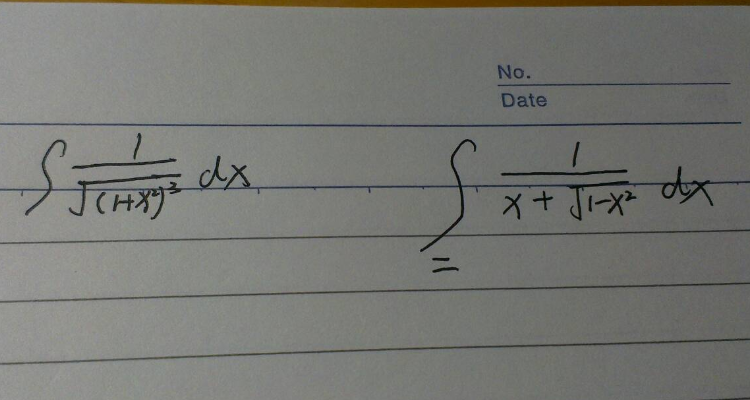 No.
Date
∫ 1/√((1+x²)³) dx
∫ 1/(x + √(1-x²)) dx
=